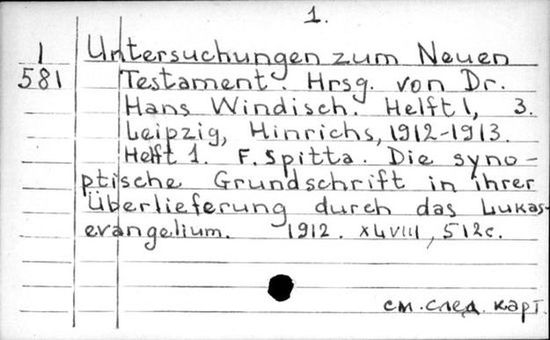 1.
1 Untersuchungen zum Neuen
581 Testament. Hrsg. von Dr.
Hans Windisch. Helft 1, 3.
Leipzig, Hinrichs, 1912-1913.
Helft 1. F. Spitta. Die syno-
ptische Grundschrift in ihrer
Überlieferung durch das Lukas-
evangelium. 1912. XLVIII, 512c.
см. след. карт.